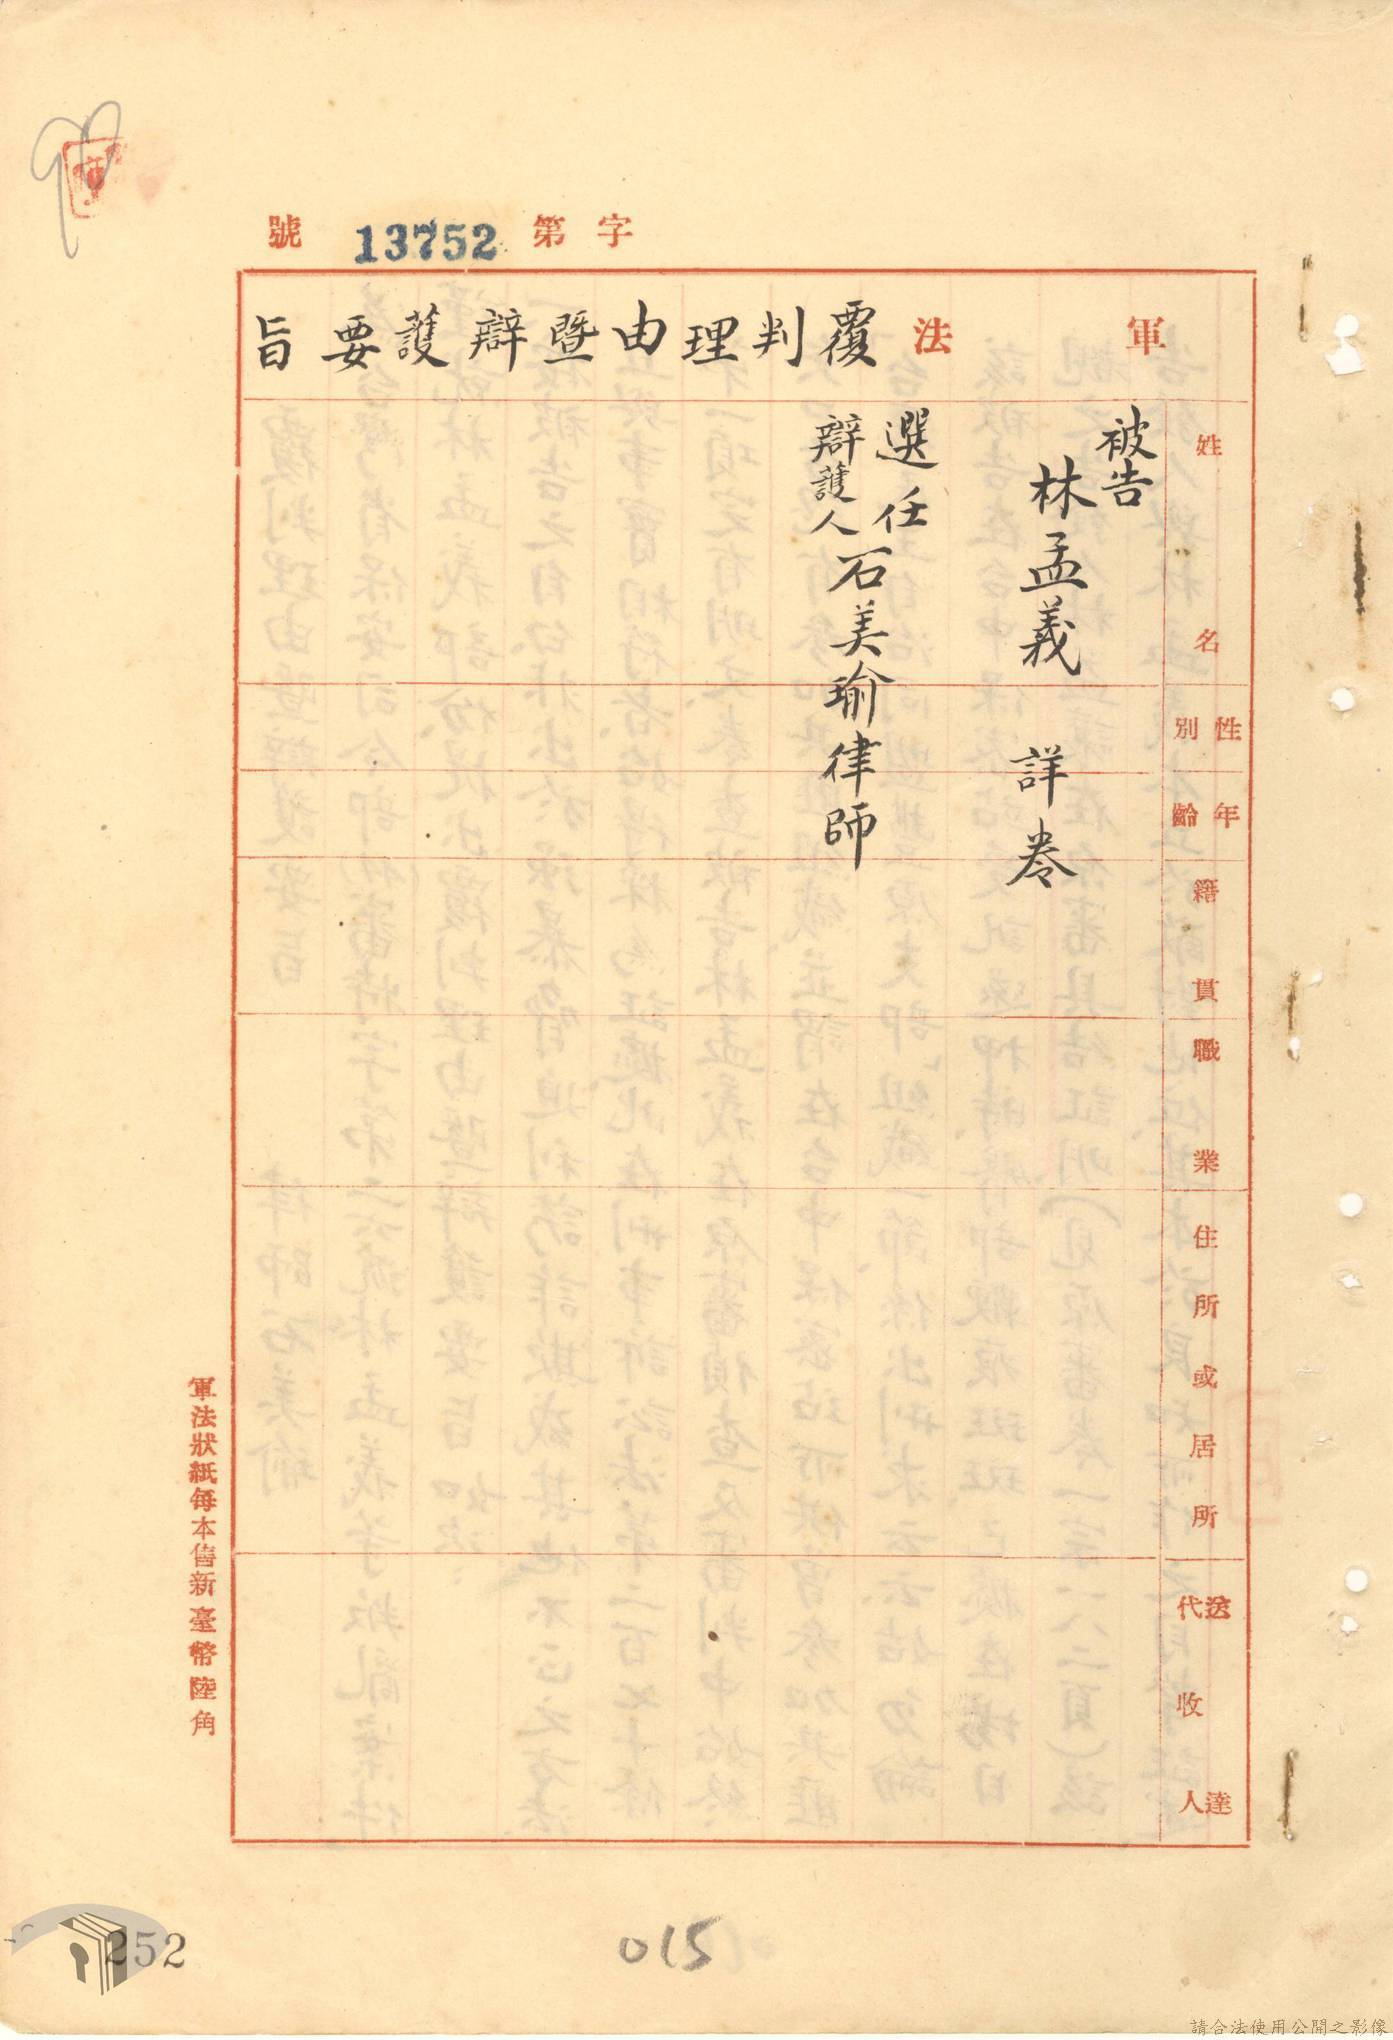 字第13752號
軍法覆判理由暨辯護要旨
姓名
性別
年齡
籍貫
職業
住所或居所
送達代收人
被告
林孟義 詳卷
選任
辯護人
石美瑜律師
軍法狀紙每本售新臺幣陸角
90
252
015
請合法使用公開之影像